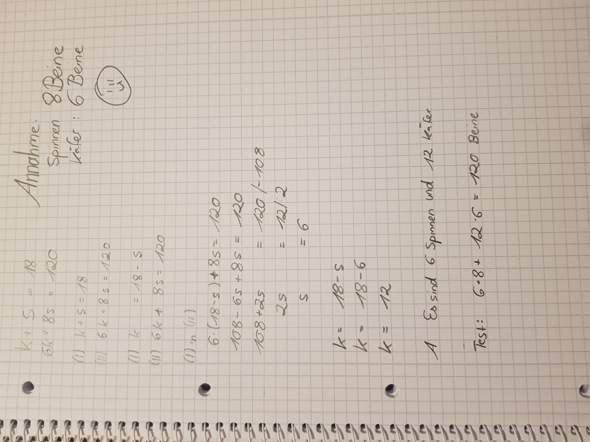 k + s = 18
6k + 8s = 120
(I) k + s = 18
(II) 6k + 8s = 120
(I) k = 18 - s
(II) 6k + 8s = 120
(I) in (II)
6(18-s) + 8s = 120
108 - 6s + 8s = 120
108 + 2s = 120 /-108
2s = 12/:2
s = 6
k = 18 - s
k = 18 - 6
k = 12
A Es sind 6 Spinnen und 12 Käfer
Test: 6·8 + 12·6 = 120 Beine
Annahme:
Spinnen 8 Beine
Käfer : 6 Beine